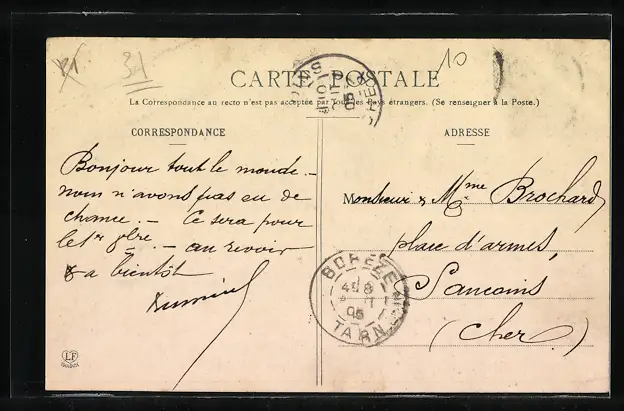 31
10
CARTE POSTALE
La Correspondance au recto n'est pas acceptée par tous les Pays étrangers. (Se renseigner à la Poste.)
CORRESPONDANCE
Bonjour tout le monde. —
nous n'avons pas eu de
chance. — Ce sera pour
le 1er 8bre. — au revoir
& a bientôt
ADRESSE
Monsieur & Mme Brochard
place d'armes,
Sancoins
(Cher)
05
CHER
TARN
05
LF